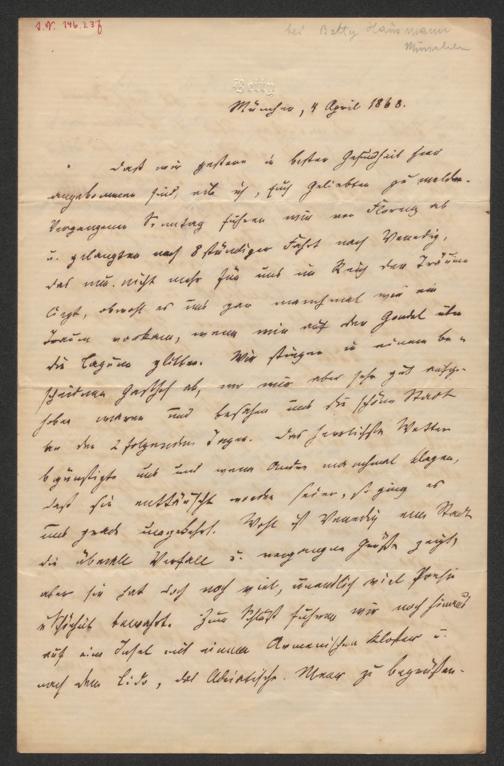 I.N. 146.237
bei Betty Hausmann
München
Betty
München, 4 April 1868.
Daß wir gestern in bester Gesundheit hier
angekommen sind, eile ich, Euch Geliebten zu melden.
Vergangenen Sonntag fuhren wir von Florenz ab
u. gelangten nach 8 stündiger Fahrt nach Venedig,
das nun nicht mehr für uns im Reich der Träume
liegt, obwohl es uns gar manchmal wie ein
Traum vorkam, wenn wir auf der Gondel über
die Lagune glitten. Wir stiegen in einem be-
scheidenen Gasthof ab, wo wir aber sehr gut aufge-
hoben waren und besahen uns die schöne Stadt
an den 2 folgenden Tagen. Das herrlichste Wetter
begünstigte uns und wenn Andre manchmal klagen,
daß sie enttäuscht worden seien, so ging es
uns grade umgekehrt. Wohl ist Venedig eine Stadt
die überall Verfall u. vergangne Größe zeigt,
aber sie hat doch noch viel, unendlich viel Poesie
u Schönheit bewahrt. Zum Schluß fuhren wir noch hinaus
auf eine Insel mit einem Armenischen Kloster u.
nach dem Lido, das Adriatische Meer zu begrüßen.